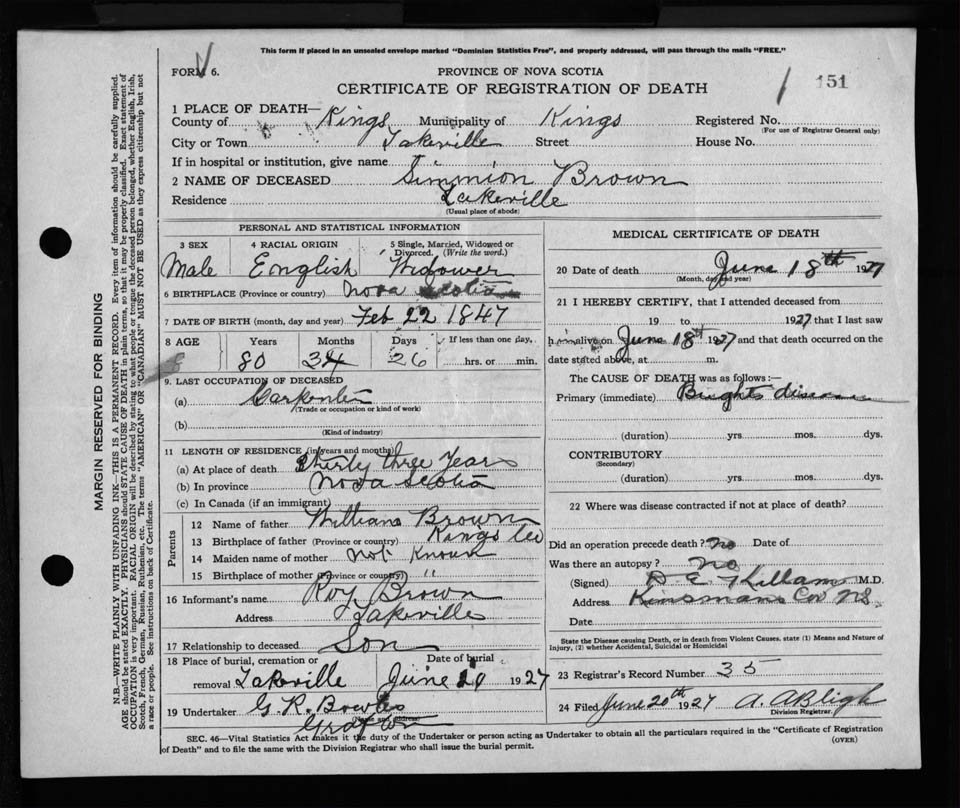 This form if placed in an unsealed envelope marked "Dominion Statistics Free", and properly addressed, will pass through the mails "FREE."
FORM 6.
PROVINCE OF NOVA SCOTIA
CERTIFICATE OF REGISTRATION OF DEATH
151
1 PLACE OF DEATH—
County of Kings Municipality of Kings Registered No.
(For use of Registrar General only)
City or Town Lakeville Street House No.
If in hospital or institution, give name
2 NAME OF DECEASED Simmion Brown
Residence Lakeville
(Usual place of abode)
PERSONAL AND STATISTICAL INFORMATION
3 SEX 4 RACIAL ORIGIN 5 Single, Married, Widowed or Divorced. (Write the word.)
Male English Widower
6 BIRTHPLACE (Province or country) Nova Scotia
7 DATE OF BIRTH (month, day and year) Feb 22 1847
8 AGE Years Months Days If less than one day,
80 3 26 hrs. or min.
9. LAST OCCUPATION OF DECEASED
(a) Carpenter
(Trade or occupation or kind of work)
(b)
(Kind of industry)
11 LENGTH OF RESIDENCE (in years and months)
(a) At place of death thirty three years
(b) In province Nova Scotia
(c) In Canada (if an immigrant)
Parents
12 Name of father William Brown
13 Birthplace of father (Province or country) Kings Co
14 Maiden name of mother not Known
15 Birthplace of mother (Province or country) "
16 Informant's name Roy Brown
Address Lakeville
17 Relationship to deceased Son
18 Place of burial, cremation or removal Lakeville Date of burial June 1927
19 Undertaker G. R. Bowles
(Name and address)
Grafton
MEDICAL CERTIFICATE OF DEATH
20 Date of death June 18th 1927
(Month, day and year)
21 I HEREBY CERTIFY, that I attended deceased from
19 to 1927 that I last saw
him alive on June 18th 1927 and that death occurred on the
date stated above, at m.
The CAUSE OF DEATH was as follows:—
Primary (immediate) Brights disease
(duration) yrs. mos. dys.
CONTRIBUTORY
(Secondary)
(duration) yrs. mos. dys.
22 Where was disease contracted if not at place of death?
Did an operation precede death? no Date of
Was there an autopsy? no
(Signed) Killam M.D.
Address Kinsmans Cor NS
Date
State the Disease causing Death, or in death from Violent Causes, state (1) Means and Nature of
Injury, (2) whether Accidental, Suicidal or Homicidal
23 Registrar's Record Number 35
24 Filed June 20th 1927 A. A Bligh
Division Registrar.
SEC. 46—Vital Statistics Act makes it the duty of the Undertaker or person acting as Undertaker to obtain all the particulars required in the "Certificate of Registration
of Death" and to file the same with the Division Registrar who shall issue the burial permit.
(OVER)
MARGIN RESERVED FOR BINDING
N.B.—WRITE PLAINLY WITH UNFADING INK—THIS IS A PERMANENT RECORD. Every item of information should be carefully supplied.
AGE should be stated EXACTLY. PHYSICIANS should STATE CAUSE OF DEATH in plain terms, so that it may be properly classified. Exact statement of
OCCUPATION is very important. RACIAL ORIGIN will be described by stating to what people or tongue the deceased person belonged, whether English, Irish,
Scotch, French, German, Russian, Ruthenian, etc. The terms "AMERICAN" OR "CANADIAN" MUST NOT BE USED as they express citizenship but not
a race or people. See instructions on back of Certificate.